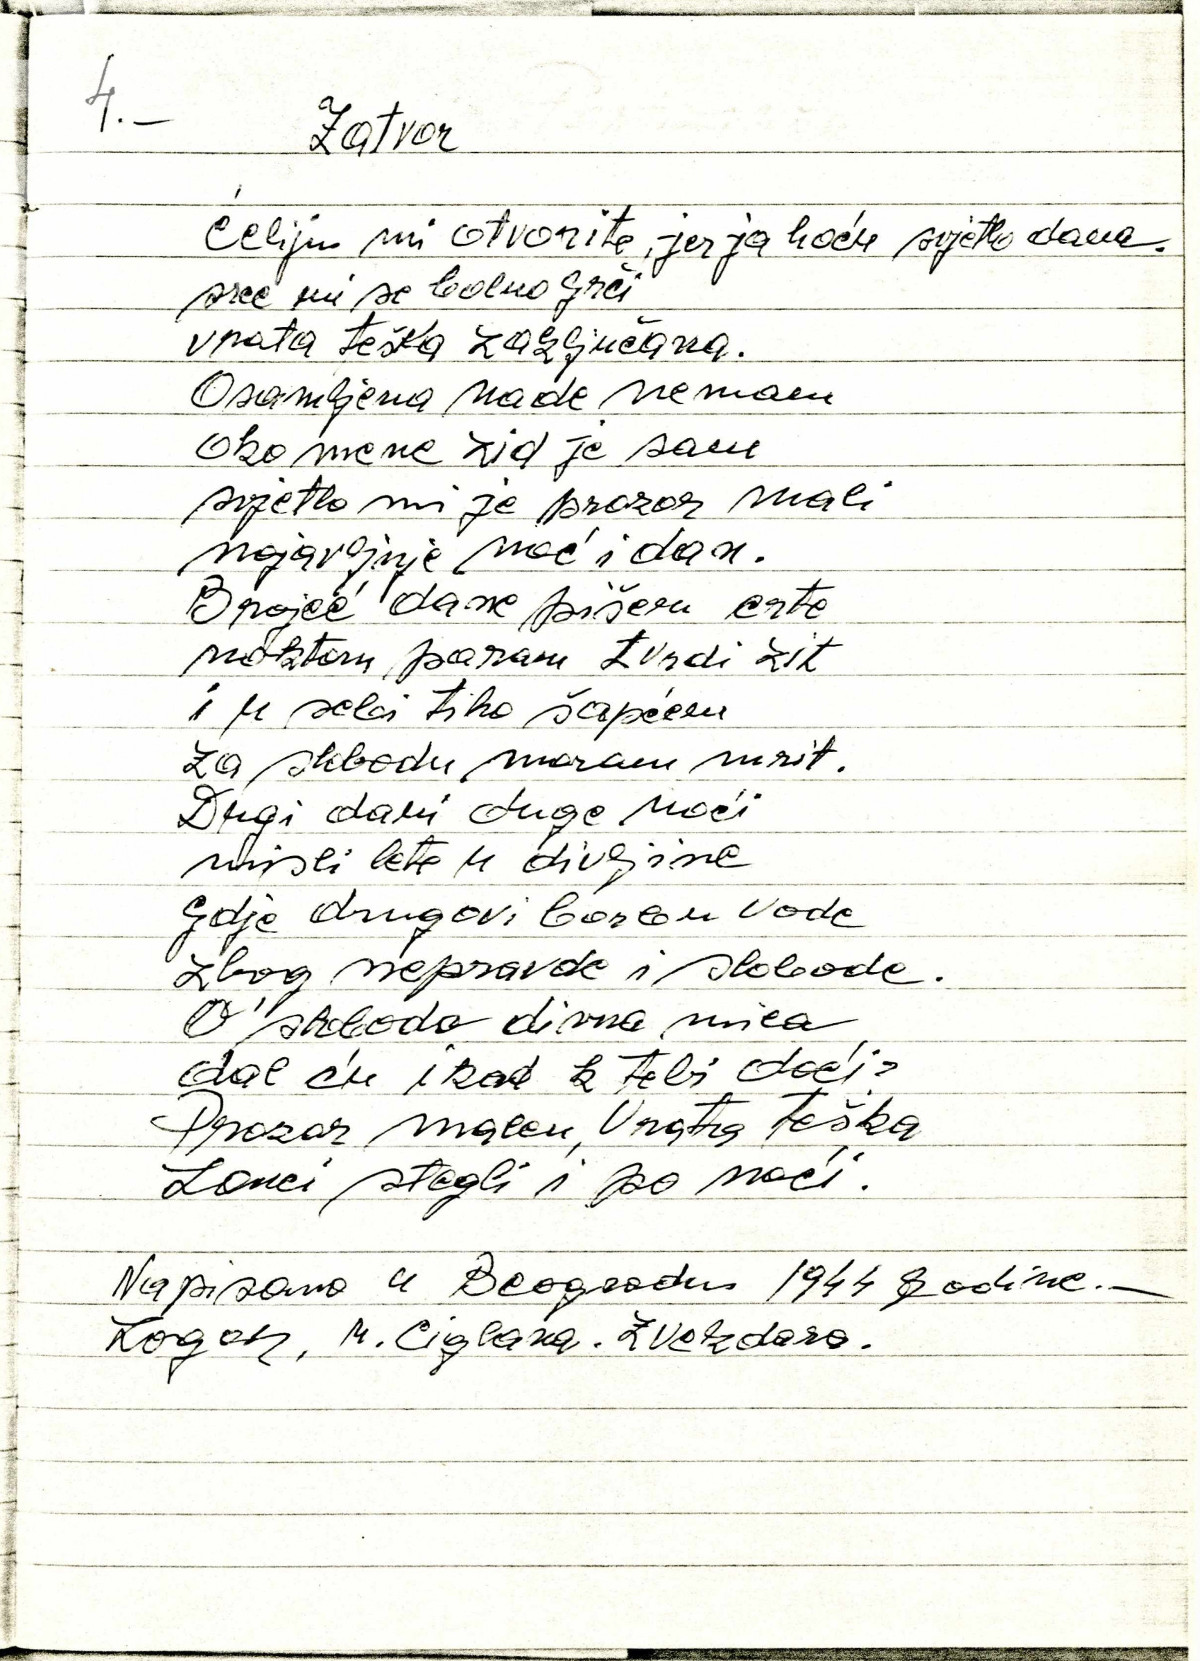 4.-
Zatvor
Ćeliju mi otvorite, jer ja hoću svjetlo dana.
srce mi se bolno grči
vrata teška zaključana.
Osamljena nade nemam
oko mene zid je sam
svjetlo mi je prozor mali
najavljuje noć i dan.
Brojeć dane pišem crte
noktom param tvrdi zit
i u sebi tiho šapćem
za slobodu moram mrit.
Dugi dani duge noći
misli lete u divljine
gdje drugovi borbu vode
zbog nepravde i slobode.
O' slobodo divna mila
dal ću ikad k tebi doći?
Prozor malen, Vrata teška
Lanci stegli i po noći.
Napisano u Beogradu 1944 godine.—
Logor, u. Ciglana. Zvezdara.